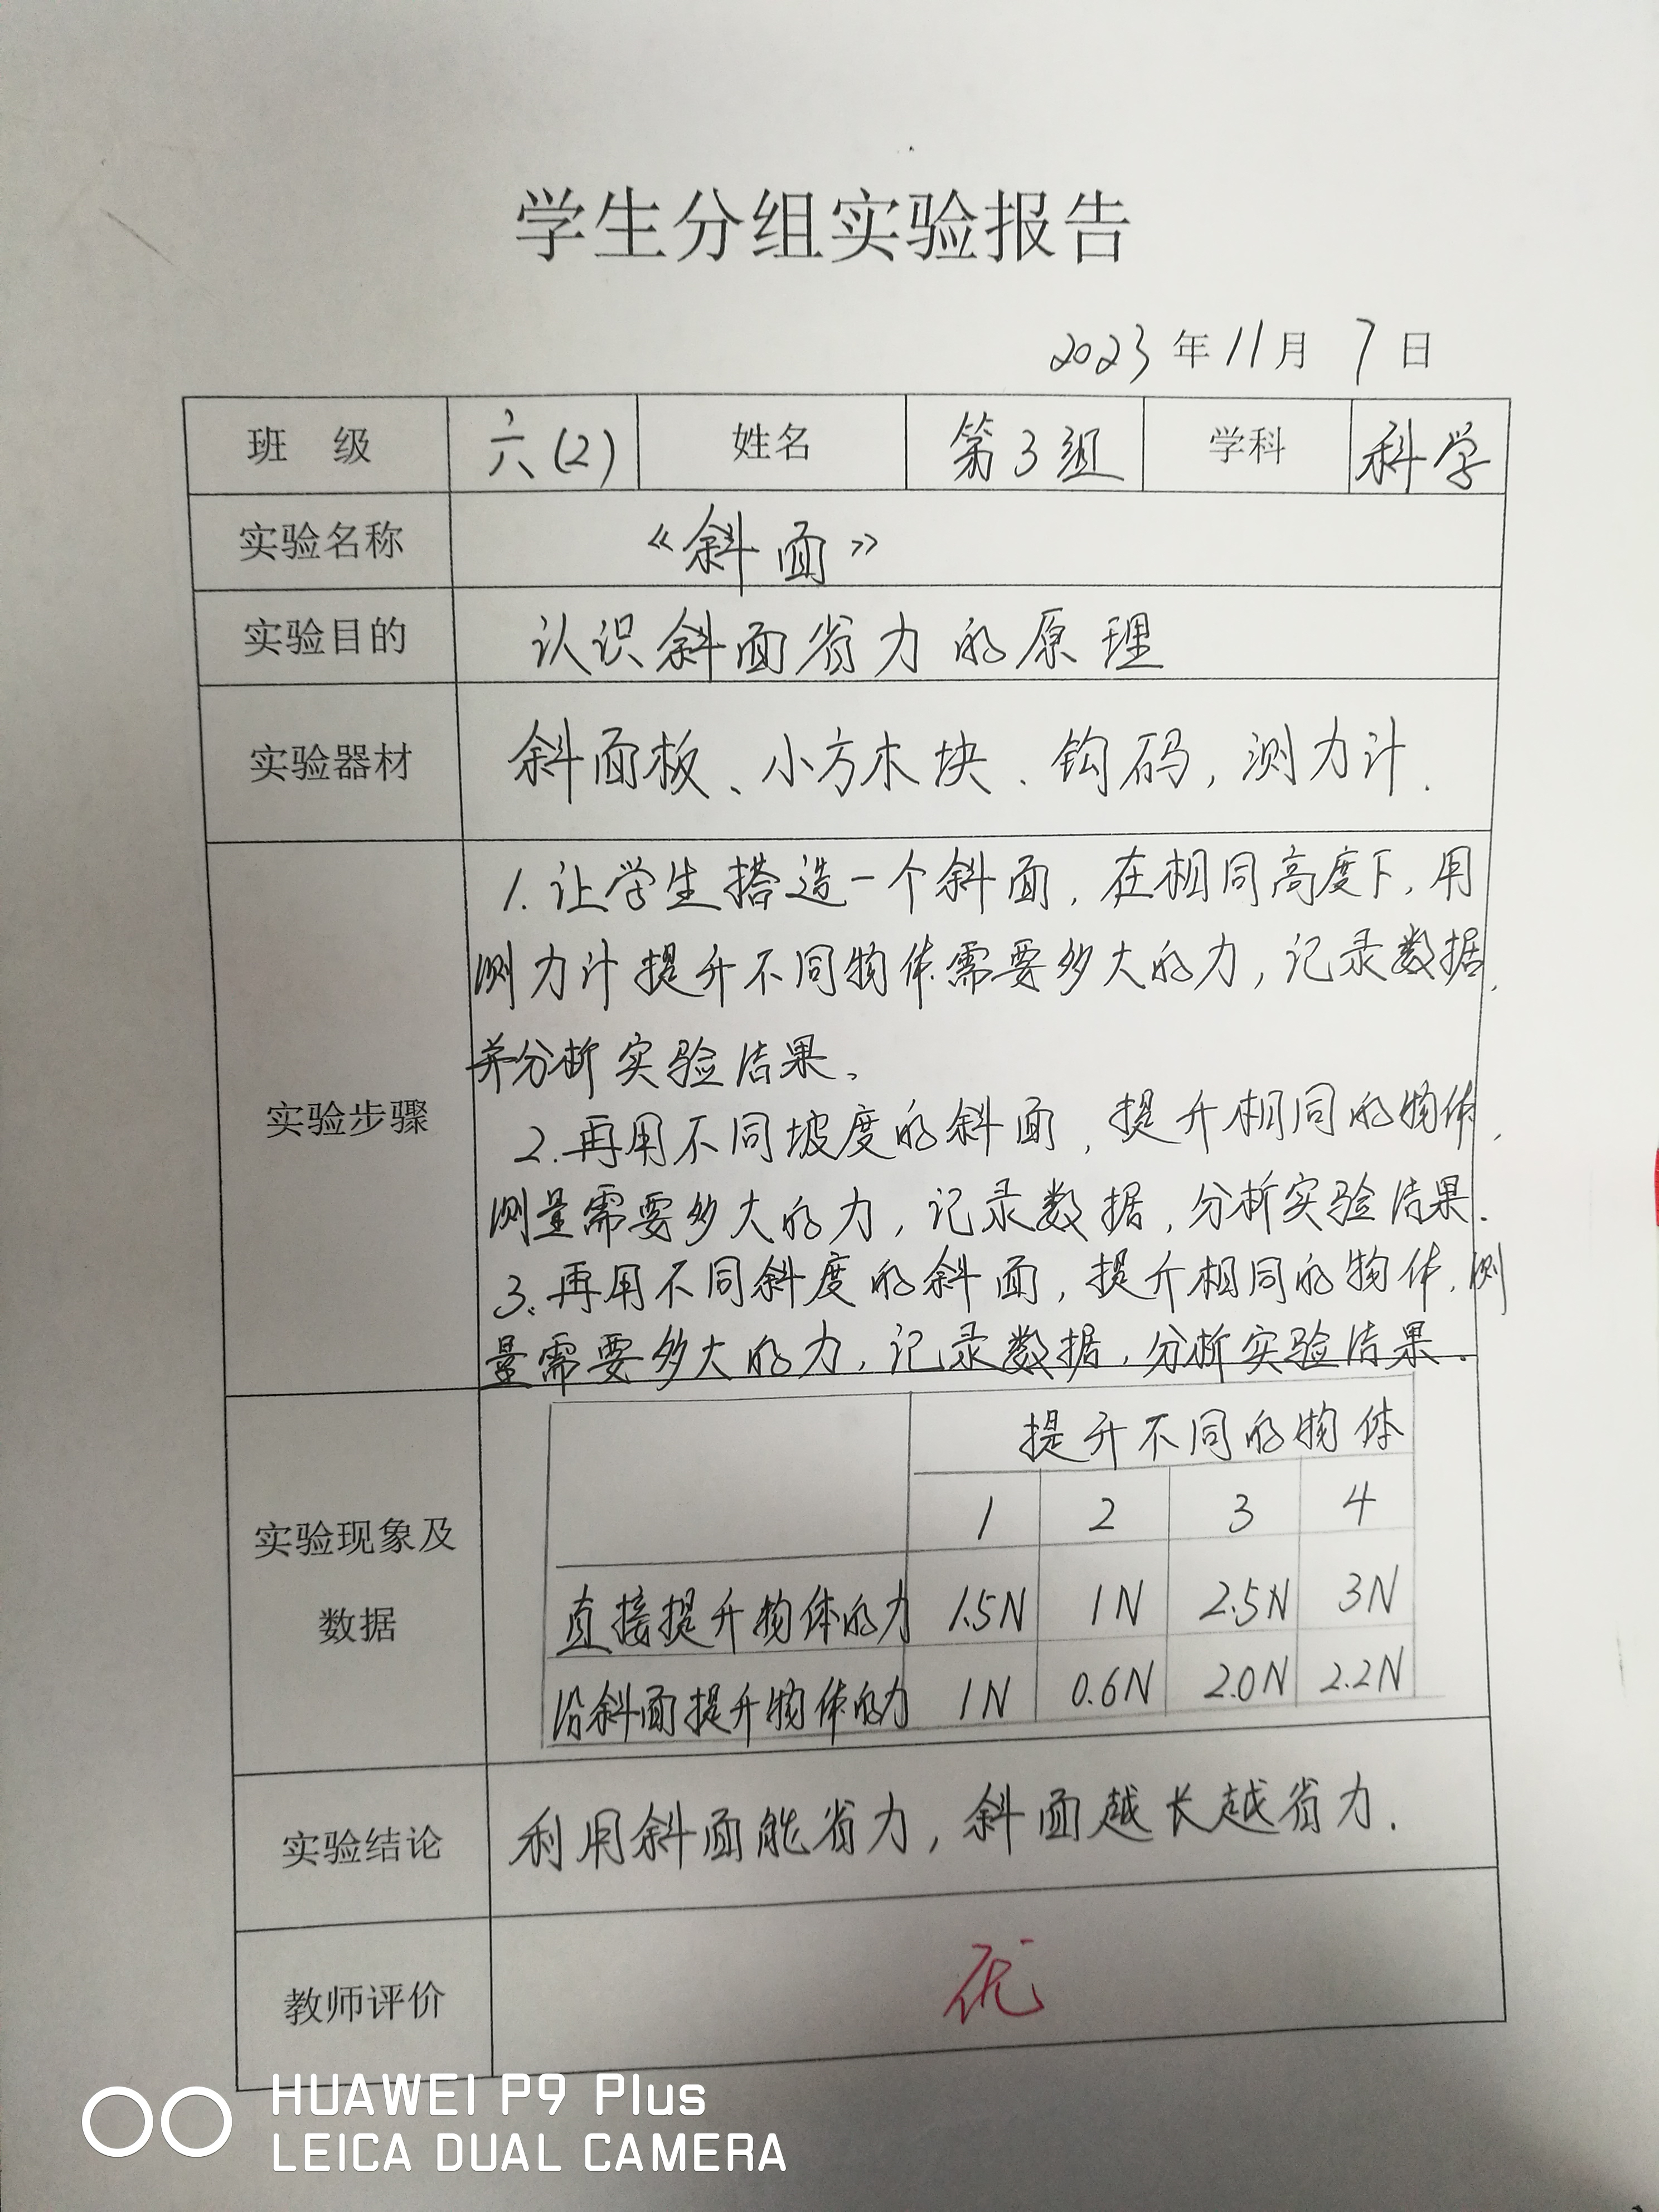 学生分组实验报告
2023年11月7日
班 级 六(2) 姓名 第3组 学科 科学
实验名称 《斜面》
实验目的 认识斜面省力的原理
实验器材 斜面板、小方木块、钩码,测力计.
实验步骤
1.让学生搭造一个斜面,在相同高度下,用
测力计提升不同物体需要多大的力,记录数据,
并分析实验结果。
2.再用不同坡度的斜面,提升相同的物体,
测量需要多大的力,记录数据,分析实验结果.
3、再用不同斜度的斜面,提升相同的物体,测
量需要多大的力,记录数据,分析实验结果.
实验现象及
数据
提升不同的物体
1 2 3 4
直接提升物体的力 1.5N 1N 2.5N 3N
沿斜面提升物体的力 1N 0.6N 2.0N 2.2N
实验结论 利用斜面能省力,斜面越长越省力.
教师评价 优
HUAWEI P9 Plus
LEICA DUAL CAMERA